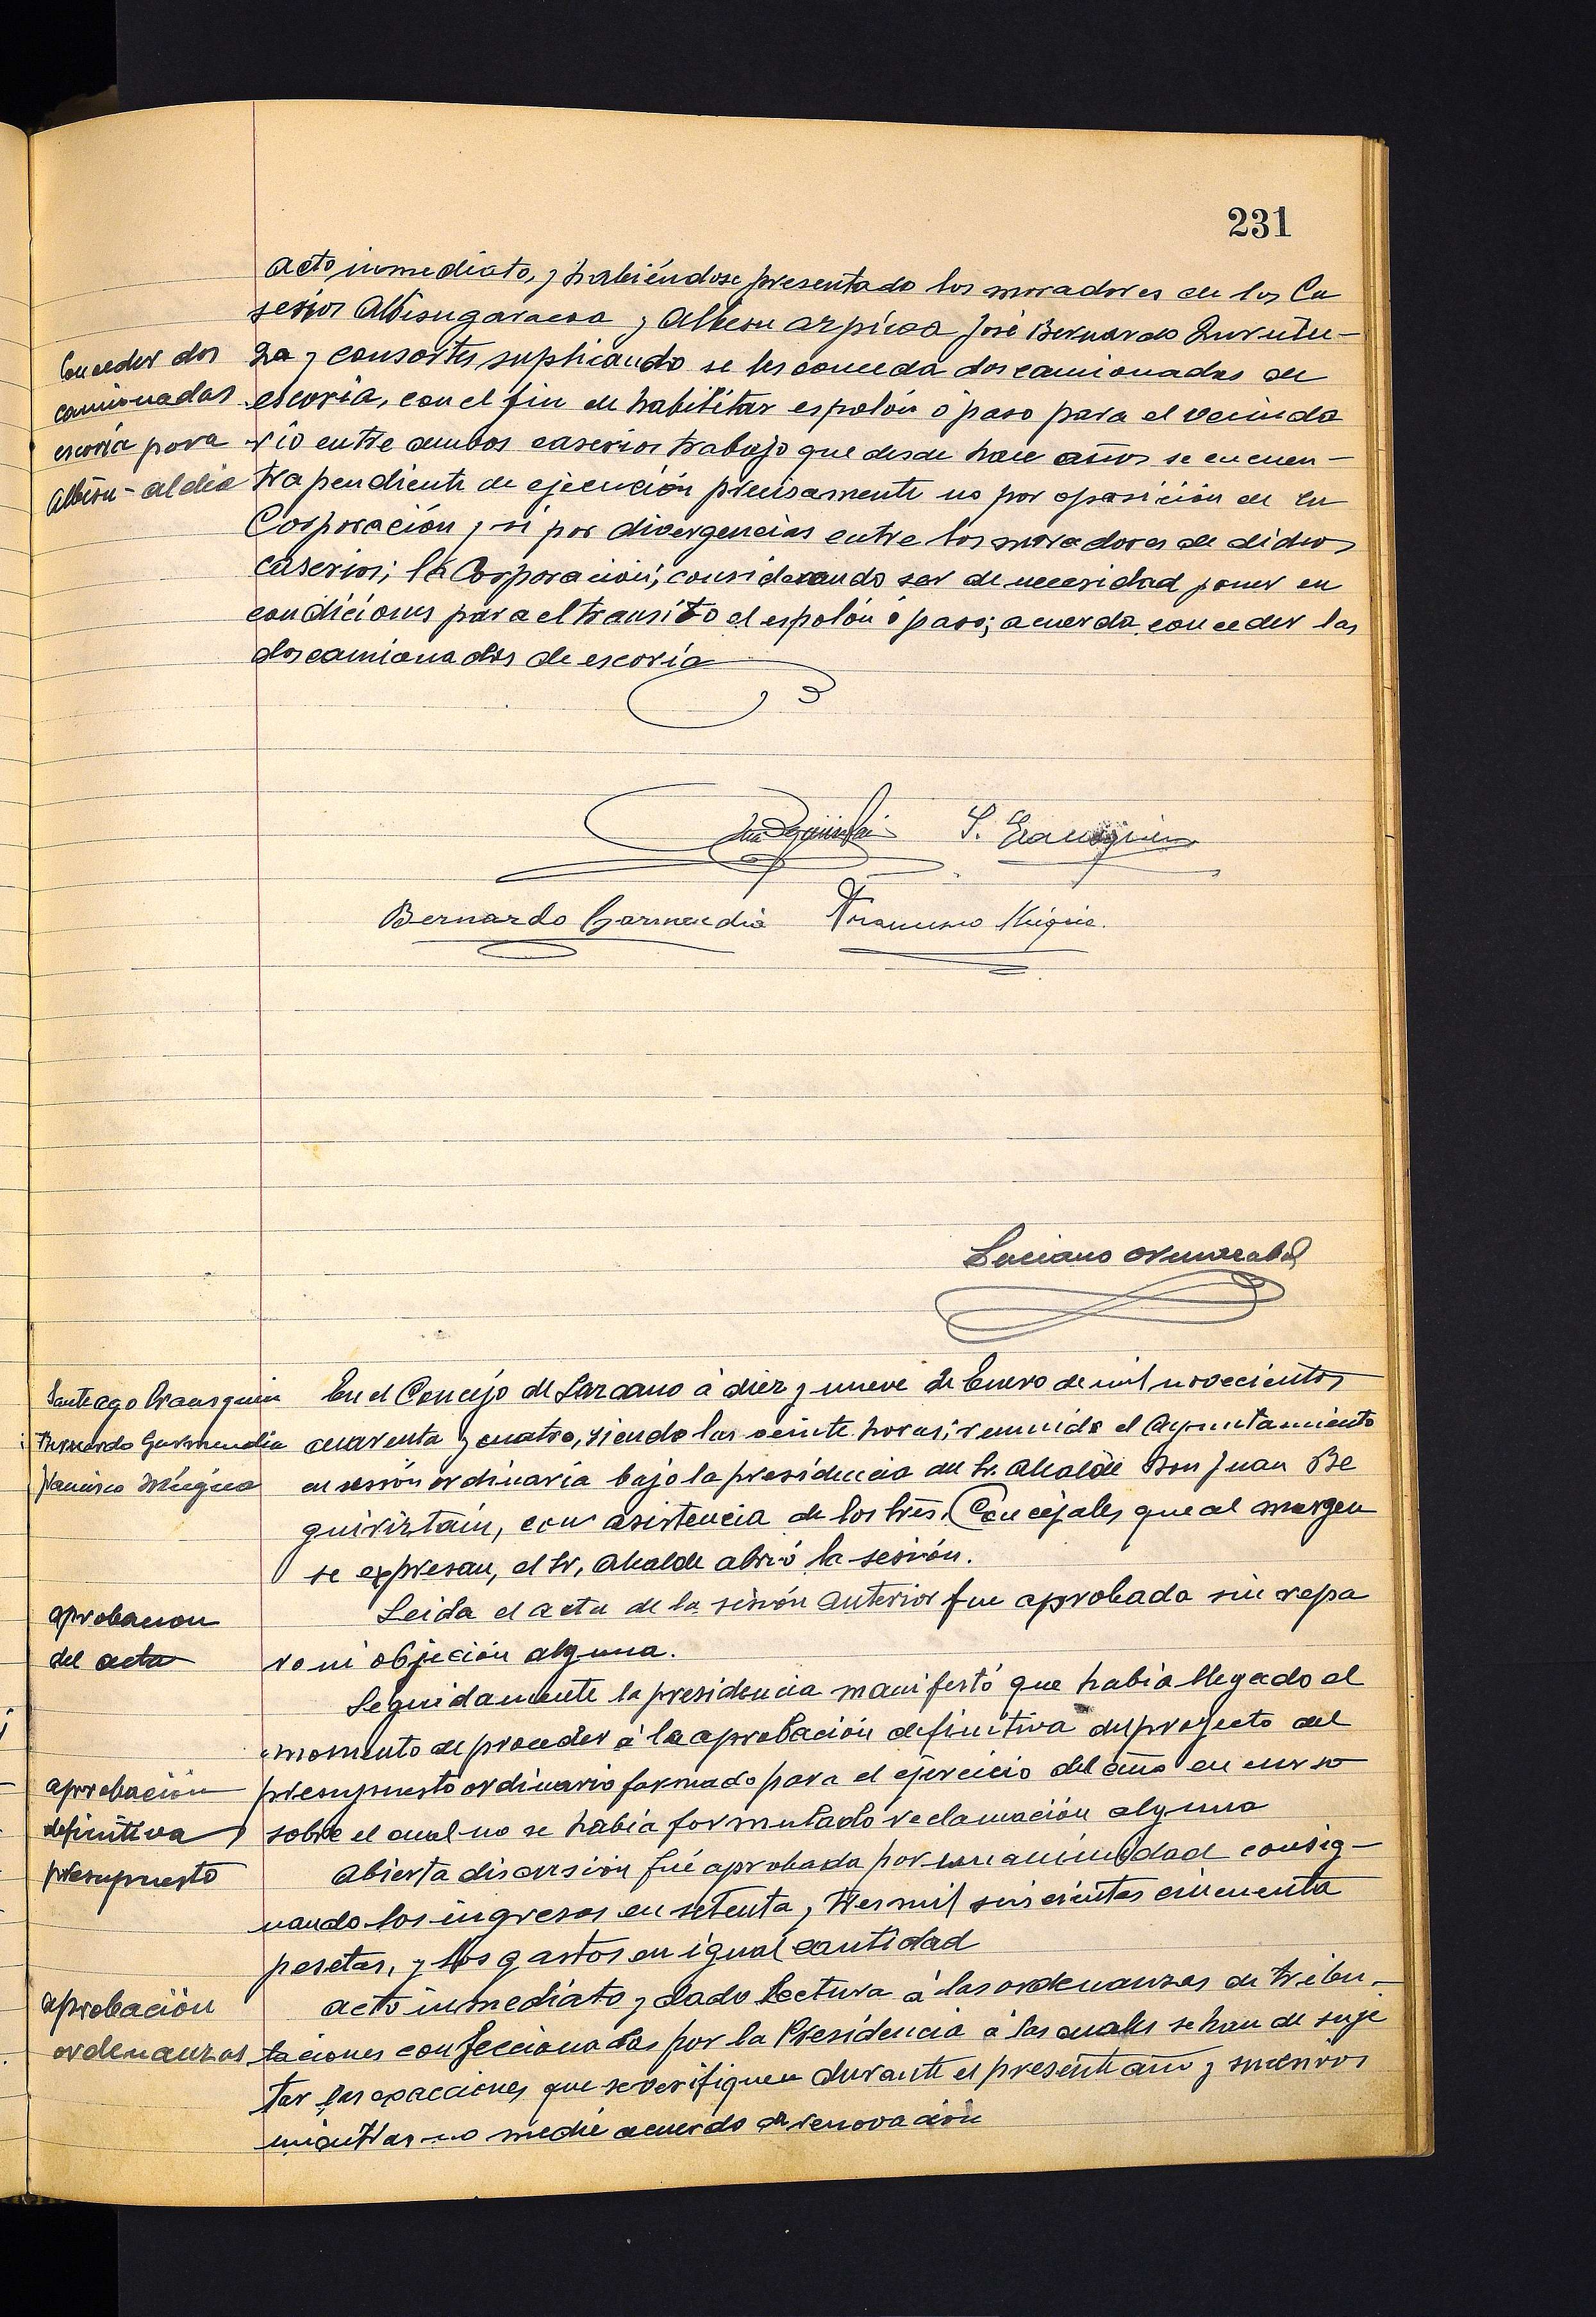 231
acto inmediato, y habiéndose presentado los moradores de los Ca
serios Albisugaracoa y Albisu azpicoa José Bernardo Zurutu-
za y consortes suplicando se les conceda dos camionadas de
escoria, con el fin de habilitar espolón ó paso para el vecinda
rio entre ambos caserios trabajo que desde hace años se encuen-
tra pendiente de ejecución precisamente no por oposición de la
Corporación y si por divergencias entre los moradores de dichos
caserios; la Corporación, considerando ser de necesidad poner en
condiciones para el transito el espolón ó paso; acuerda conceder las
dos camionadas de escoria
Conceder dos
camionadas
escoria para
Albisu-aldea
Bernardo Garmendia Francisco Múgica.
Luciano
Santiago
Bernardo Garmendia
Francisco Múgica
En el Concejo de Lazcano á diez y nueve de Enero de mil novecientos
cuarenta y cuatro, siendo las veinte horas; reunido el Ayuntamiento
en sesión ordinaria bajo la presidencia del Sr. Alcalde Don Juan Be
guiriztain, con asistencia de los Sres. Concejales que al margen
se expresan, el Sr. Alcalde abrió la sesión.
aprobacion
del acta
Leida el acta de la sesión anterior fue aprobada sin repa
ro ni objeción alguna.
Seguidamente la presidencia manifestó que habia llegado el
momento de proceder á la aprobación definitiva del proyecto del
presupuesto ordinario formado para el ejercicio del año en curso
sobre el cual no se habia formulado reclamación alguna
aprobación
definitiva
presupuesto
Abierta discusión fué aprobada por unanimidad consig-
nando los ingresos en setenta y tres mil seiscientas cincuenta
pesetas, y los gastos en igual cantidad
aprobación
ordenanzas
acto inmediato y dado lectura á las ordenanzas de tribu-
taciones confeccionadas por la Presidencia á las cuales se han de suje
tar las exacciones que se verifiquen durante el presente año y
mientras no medie acuerdo de renovación